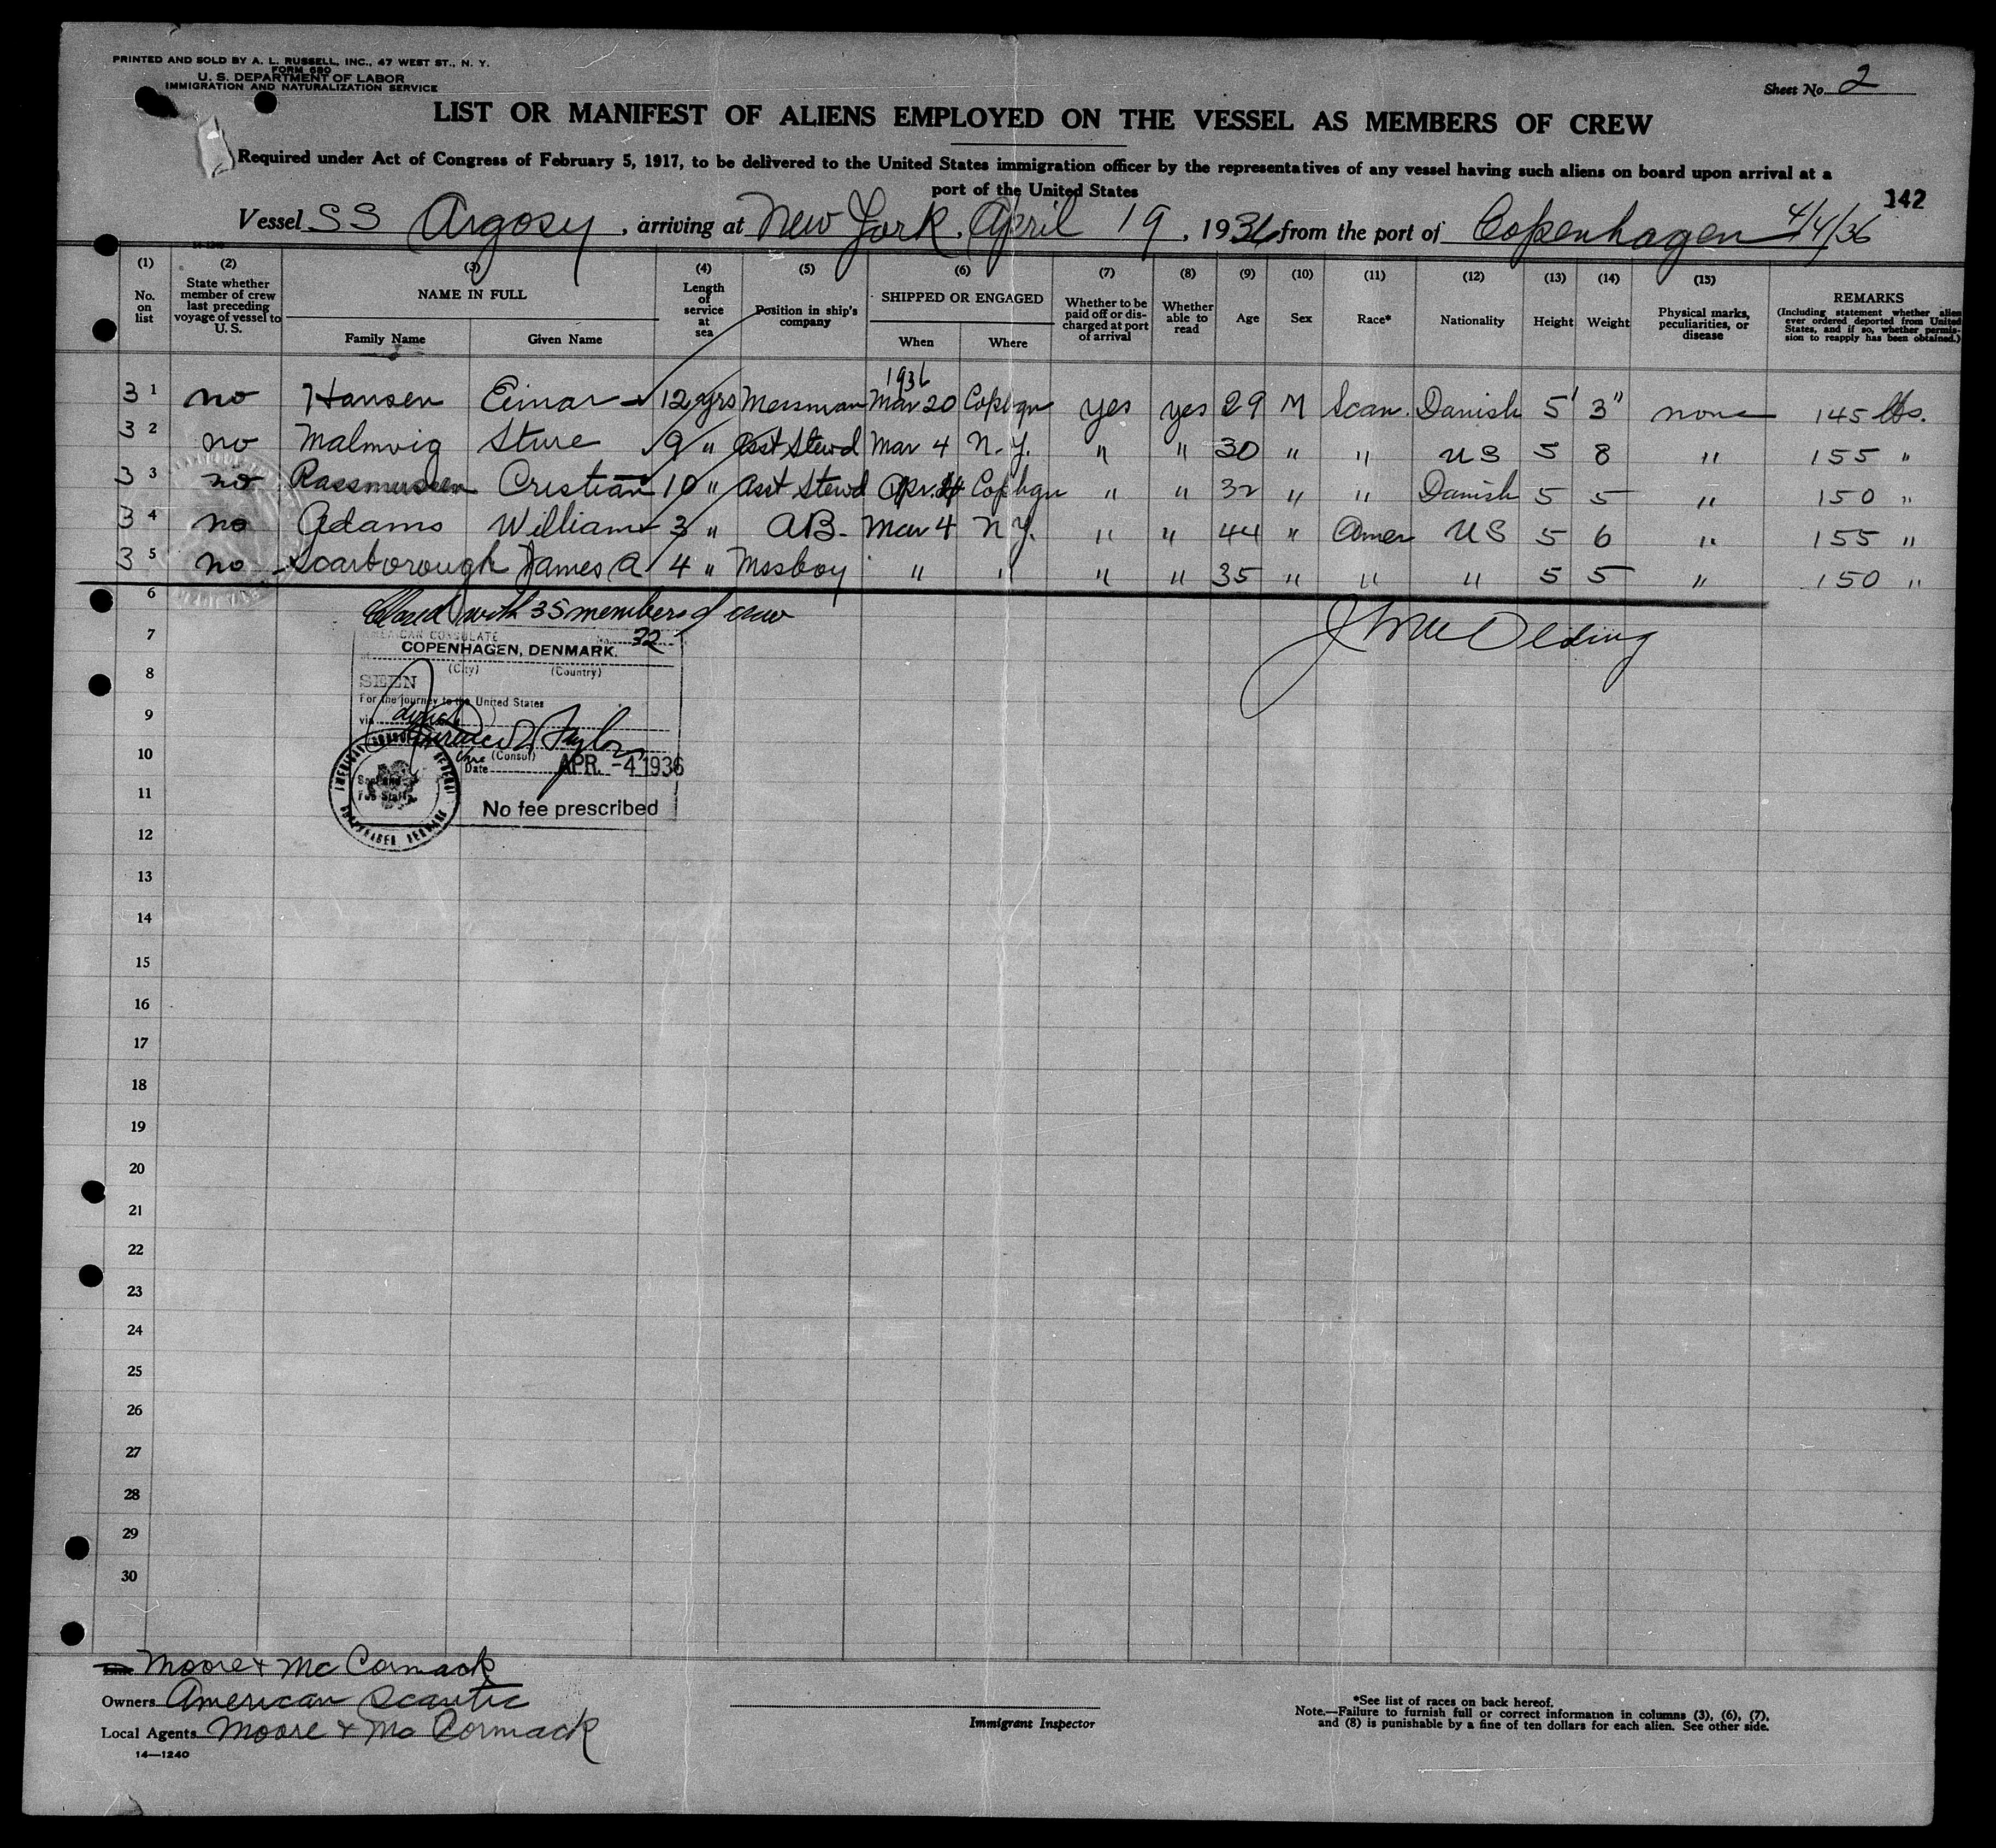 PRINTED AND SOLD BY A. L. RUSSELL, INC., 47 WEST ST., N. Y.
FORM 680
U. S. DEPARTMENT OF LABOR
IMMIGRATION AND NATURALIZATION SERVICE
Sheet No. 2
LIST OR MANIFEST OF ALIENS EMPLOYED ON THE VESSEL AS MEMBERS OF CREW
Required under Act of Congress of February 5, 1917, to be delivered to the United States immigration officer by the representatives of any vessel having such aliens on board upon arrival at a
port of the United States
142
Vessel SS Argosy, arriving at New York, April 19, 1936 from the port of Copenhagen 4/4/36
14-1240
(1) (2) (3) (4) (5) (6) (7) (8) (9) (10) (11) (12) (13) (14) (15)
No. on list
State whether member of crew last preceding voyage of vessel to U. S.
NAME IN FULL
Family Name Given Name
Length of service at sea
Position in ship's company
SHIPPED OR ENGAGED
When Where
Whether to be paid off or discharged at port of arrival
Whether able to read
Age
Sex
Race*
Nationality
Height
Weight
Physical marks, peculiarities, or disease
REMARKS
(Including statement whether alien ever ordered deported from United States, and if so, whether permission to reapply has been obtained.)
1936
3 1 no Hansen Einar 12 yrs Messman Mar 20 Cophgn yes yes 29 M Scan. Danish 5' 3" none 145 lbs.
3 2 no Malmvig Sture 9 " Asst Stewd Mar 4 N.Y. " " 30 " " US 5 8 " 155 "
3 3 no Rassmussen Cristian 10 " Asst Stewd Apr. 4 Cophgn " " 32 " " Danish 5 5 " 150 "
3 4 no Adams William 3 " AB. Mar 4 N.Y. " " 44 " Amer US 5 6 " 155 "
3 5 no Scarborough James A 4 " Messboy " " " " 35 " " " 5 5 " 150 "
6
Closed with 35 members of crew
7
AMERICAN CONSULATE
No. 32
COPENHAGEN, DENMARK.
(City) (Country)
8
SEEN
For the journey to the United States
9
via direct
10
(Consul)
Date APR. -4 1936
11
No fee prescribed
12
13
14
15
16
17
18
19
20
21
22
23
24
25
26
27
28
29
30
Moore & McCormack
Owners American Scantic
Local Agents Moore & McCormack
14—1240
Immigrant Inspector
*See list of races on back hereof.
Note.—Failure to furnish full or correct information in columns (3), (6), (7),
and (8) is punishable by a fine of ten dollars for each alien. See other side.